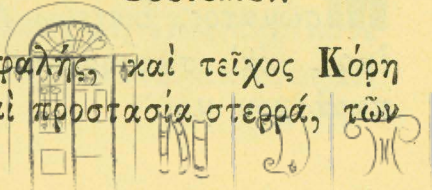 φαλής, καὶ τεῖχος Κόρη
προστασία στερρά, τῶν